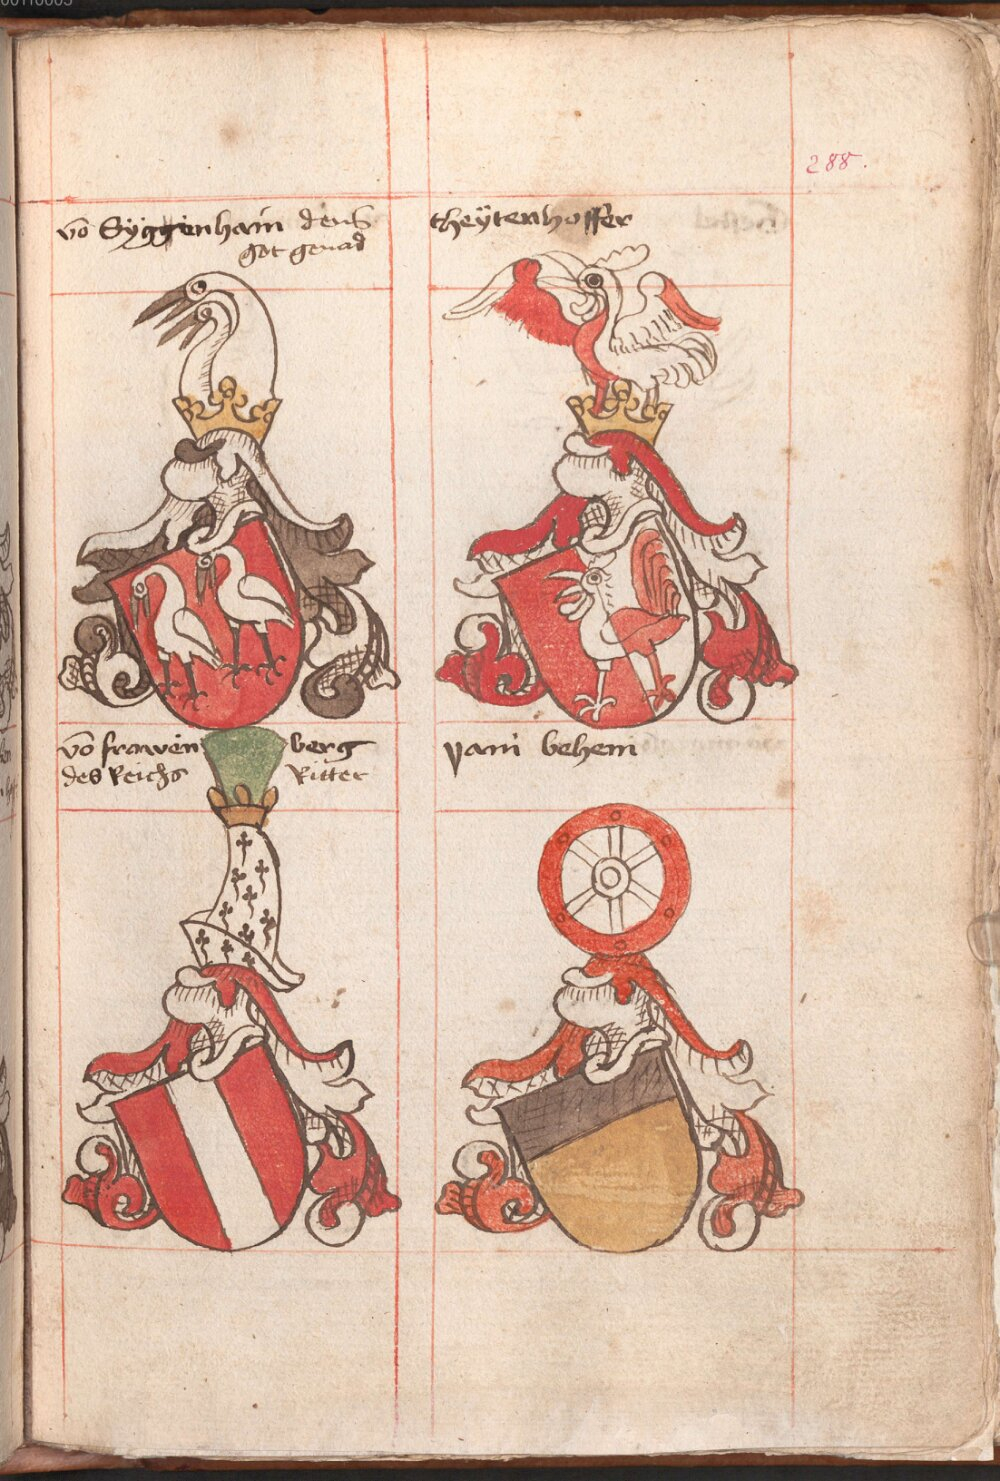 288.
võ Syggenhain dens
got genad
theÿtenhoffer
võ frawen berg
des Reichs Ritter
pam behem